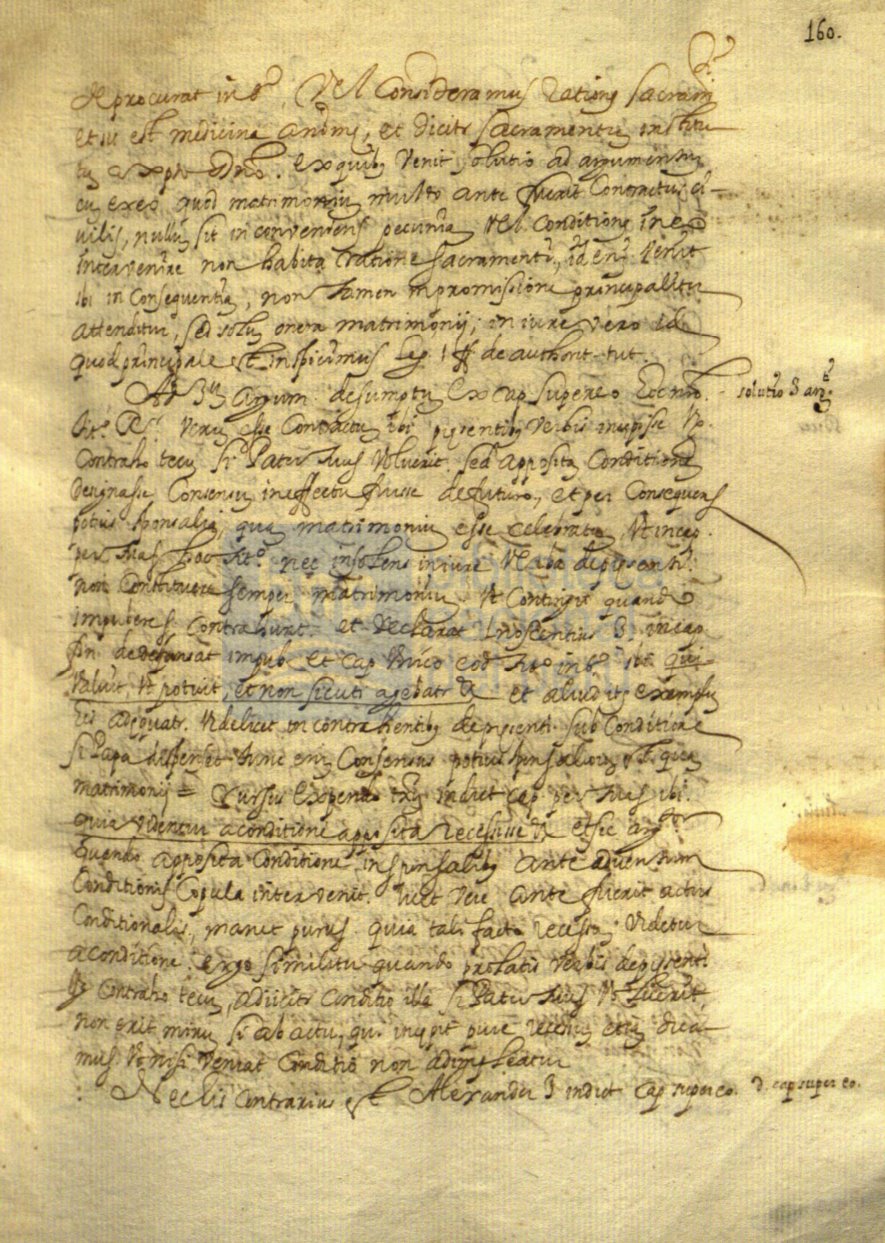 160.
de procurat in 6.º, Vel Consideramus rations sacram.ti
et sic est medicina animi, et dicitr sacramentũ institu
tũ a xpo Dnõ. ex quibꝫ venit solutio ad argumentũ,
cũ ex eo quod matrimoniũ multo ante fuerit Contractus ci-
uilis, nullũ sit inconveniens pecuniã vel Conditions in eo
intervenire non habita ratione sacramenti, id eni venit
ibi in Consequentiã, non tamen in promissione principaliter
attenditur, sed solũ onera matrimonij; in iure vero id
quod principale est inspicimus leg. 1 ff de authorit. tut.
Ad 3ũ argum. desumptũ ex cap super eo eod tto.
solutio 3 arg.ti
tt.º R.r verũ esse Contractũ ibi presentibꝫ verbis incepisse Vº.
Contraho tecũ si Pater tuus voluerit. sed apposita Conditione
designasse Consensũ in effectu fuisse de futuro, et per Consequens
potius sponsalia, quã matrimoniũ esse celebrata, Vt in cap.
per tuas hoc ttº. nec insolens in iure verba de presenti
non Constituere semper matrimoniũ Vt Contingit quando
impuberes Contrahunt. et declarat Inocentius 3. in cap.
fin. de desponsat impub. et cap Unico eod ttº in 6.º ibi qui
valuit, Vt potuit, et non sicuti agebatr &c et aliud itẽ exemplũ
eis adequatr. Videlicet in contrahentibꝫ de presenti sub Conditione
si Papa dispenset tunc eni Consensus potius sponsaliorũ est, quã
matrimonij = Rursus expendo txũ in dict cap. per tuas ibi.
quia videntur a conditione apposita recessisse &c et sic arg.tor
quando apposita Conditione in sponsalibꝫ ante aduentum
Conditionis Copula intervenit. licet vere ante fuerit actus
Conditionalis, manet purus quia tali facto recessũ videtur
a conditione. ergo similiter quando prolatis verbis de presenti
Vº Contraho tecũ, adiicitr conditio illa si Pater tuus Voluerit,
non erit mirũ si ab actu, qui incepit pure recessũ etiã dica-
mus Vt nisi veniat Conditio non adimpleatur
Nec his Contrarius est Alexander 3 in dict cap super eo.
d. cap super eo.